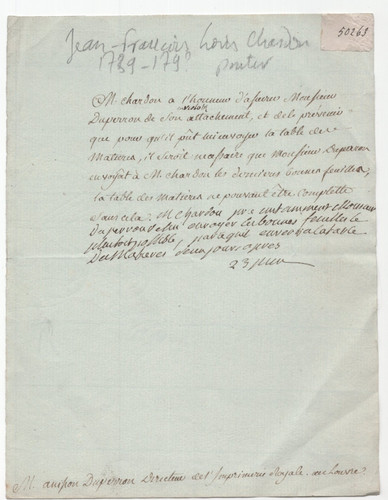 50269
Jean-François Louis Chardon
1739-179
printer
M. chardon a l'honneur d'assurer Monsieur
Duperron de son attachement, et de le prévenir
que pour qu'il put lui envoyer la table des
Matieres, il seroit nécessaire que Monsieur Duperron
envoyât à M. chardon les dernieres bonnes feuilles,
la table des matieres ne pouvant être complette
sans cela. M. chardon prie instamment Monsieur
Duperron de lui envoyer les bonnes feuilles le
plutot possible, parce que on enverra la table
Des Matieres deux jours apres
23 juin
M. anisson Duperron Directeur de l'Imprimerie Royale. au Louvre.